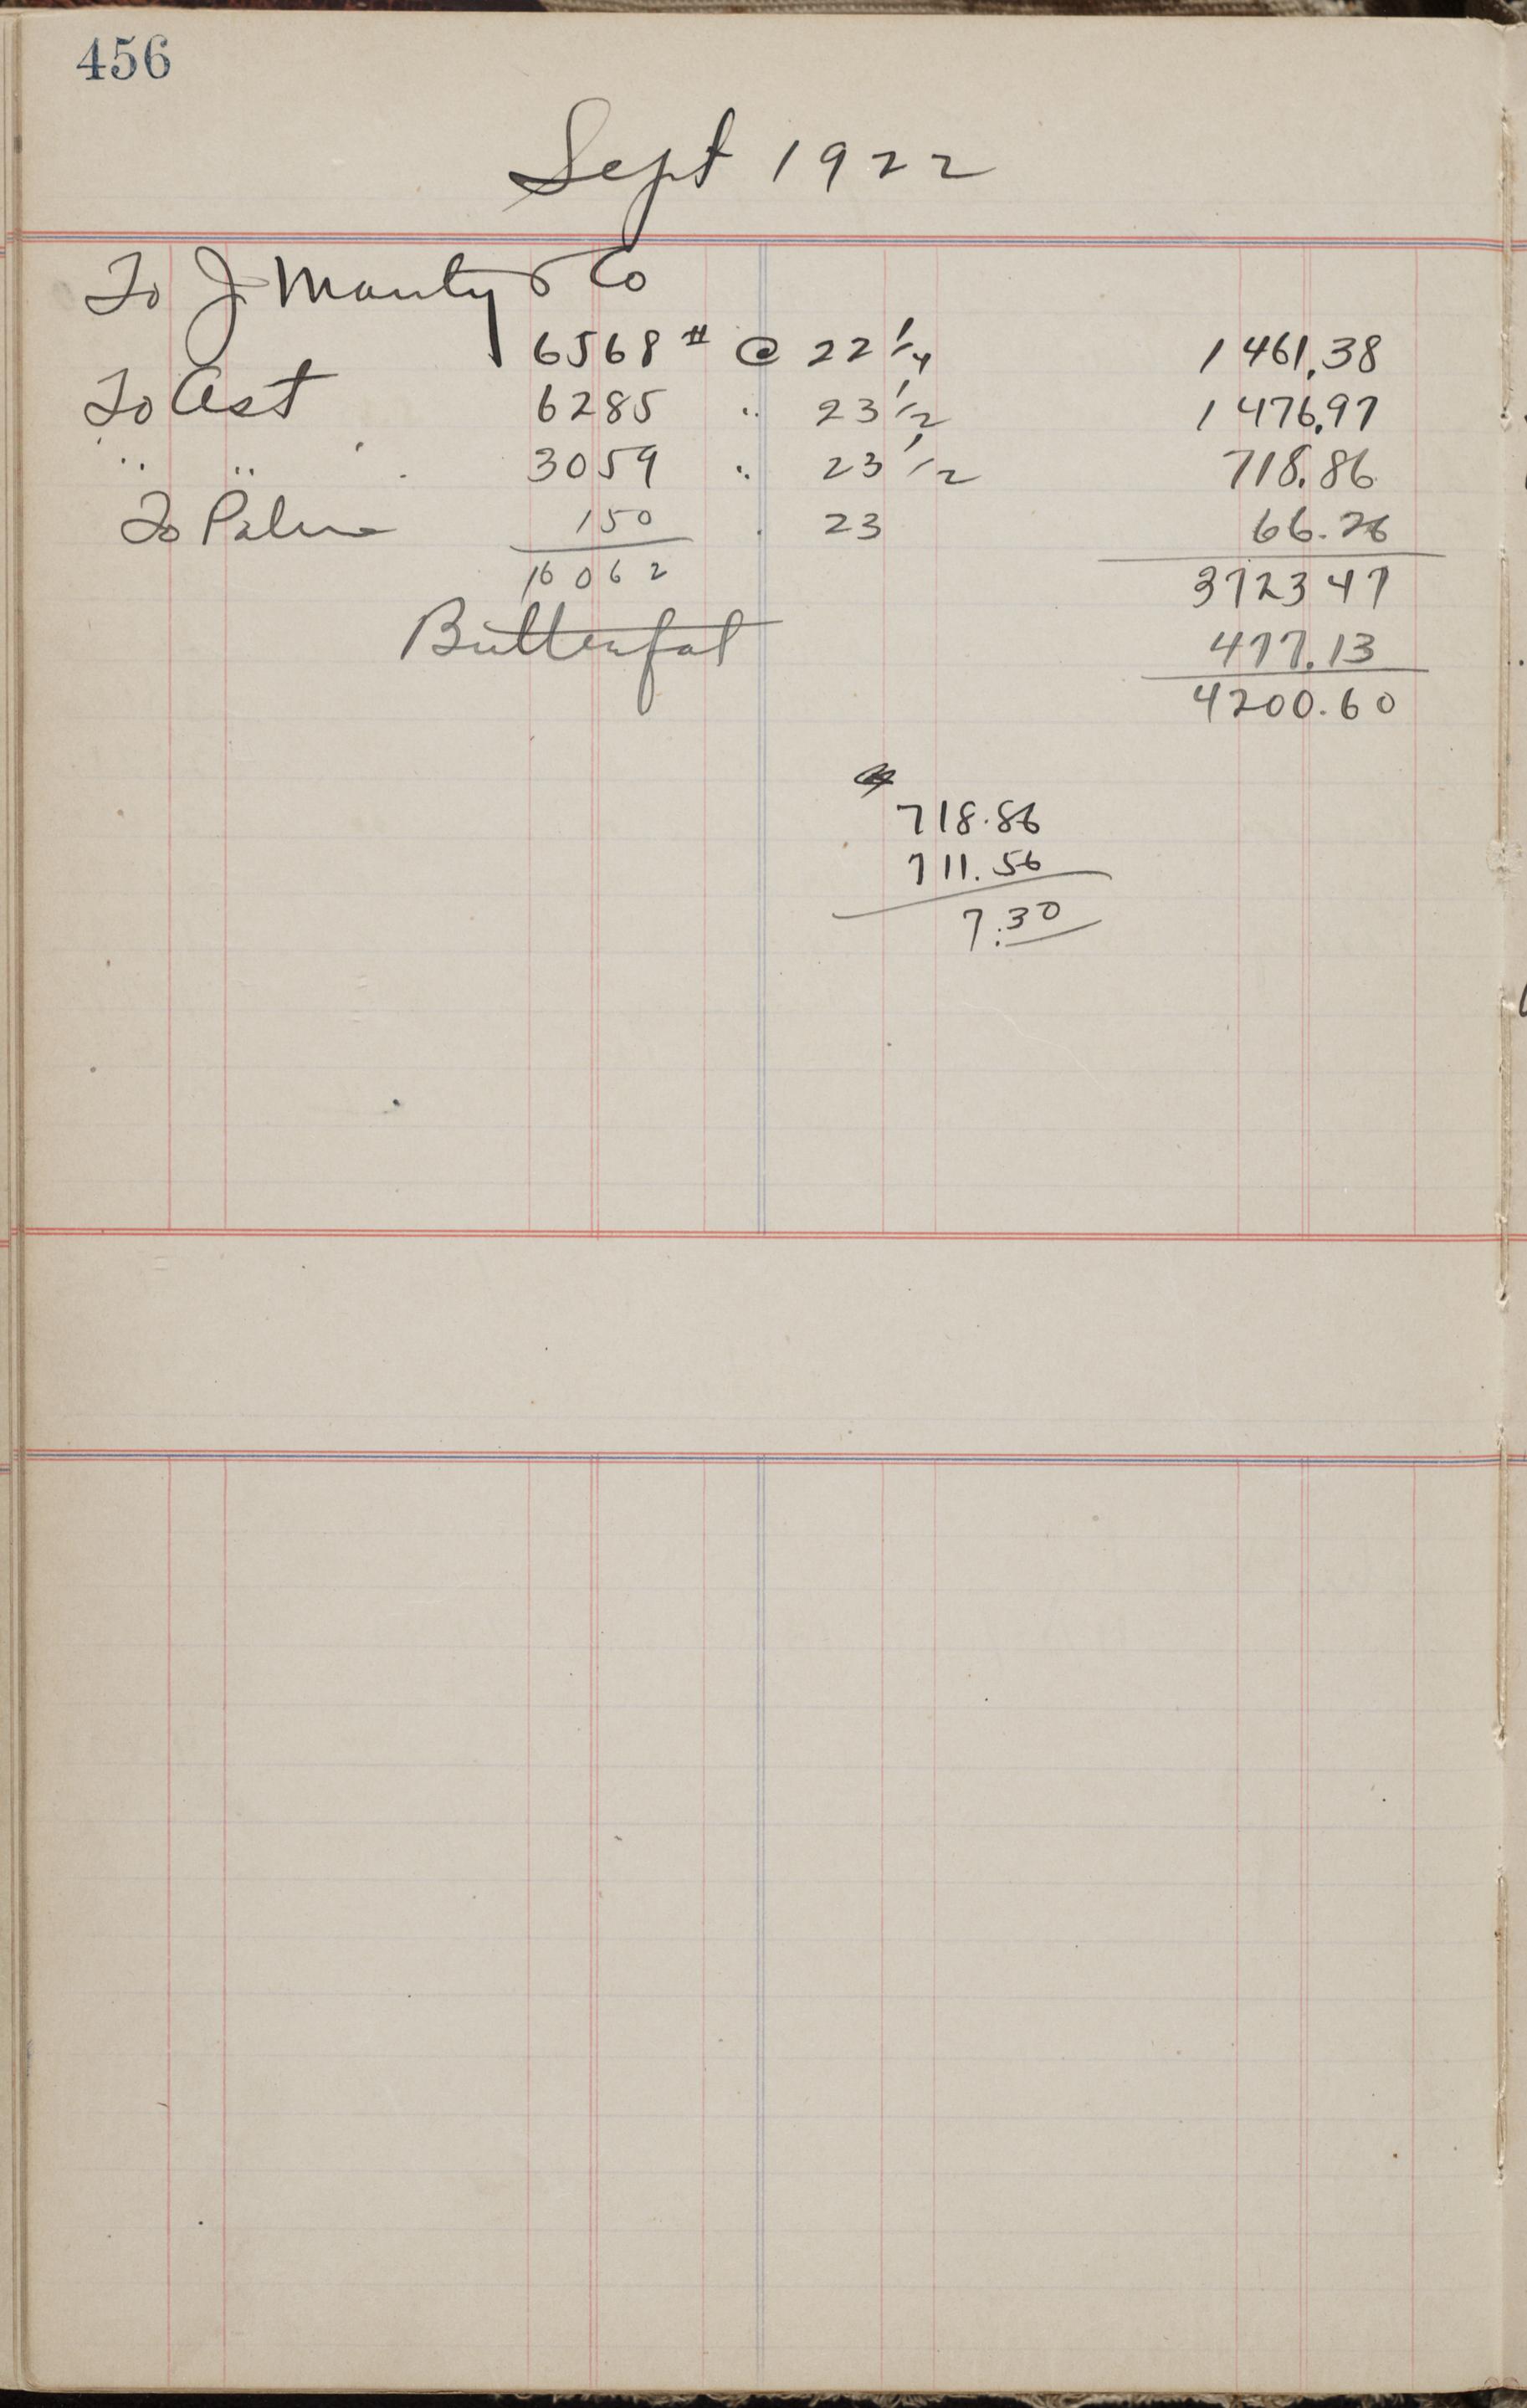 456
Sept 1922
To J. Manty & Co
6568 # @ 22 1/4 1461.38
To Ast 6285 " 23 1/2 1476.97
" " 3059 " 23 1/2 718.86
To 150 " 23 66.26
16062 3723 47
Butterfat 477.13
4200.60
718.86
711.56
7.30